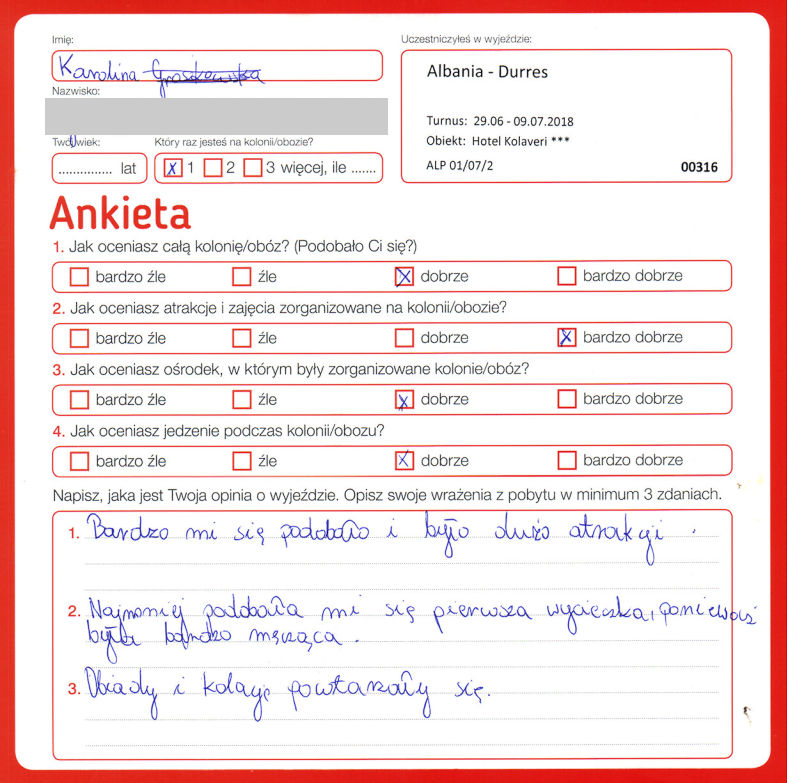 Imię:
Uczestniczyłeś w wyjeździe:
Karolina
Albania - Durres
Nazwisko:
Turnus: 29.06 - 09.07.2018
Obiekt: Hotel Kolaveri ***
ALP 01/07/2 00316
Twój wiek: Który raz jesteś na kolonii/obozie?
............... lat X 1 2 3 więcej, ile .......
Ankieta
1. Jak oceniasz całą kolonię/obóz? (Podobało Ci się?)
bardzo źle źle X dobrze bardzo dobrze
2. Jak oceniasz atrakcje i zajęcia zorganizowane na kolonii/obozie?
bardzo źle źle dobrze X bardzo dobrze
3. Jak oceniasz ośrodek, w którym były zorganizowane kolonie/obóz?
bardzo źle źle X dobrze bardzo dobrze
4. Jak oceniasz jedzenie podczas kolonii/obozu?
bardzo źle źle X dobrze bardzo dobrze
Napisz, jaka jest Twoja opinia o wyjeździe. Opisz swoje wrażenia z pobytu w minimum 3 zdaniach.
1. Bardzo mi się podobało i było dużo atrakcji .
2. Najmniej podobała mi się pierwsza wycieczka, ponieważ
była bardzo męcząca .
3. Obiady i kolacje powtarzały się.